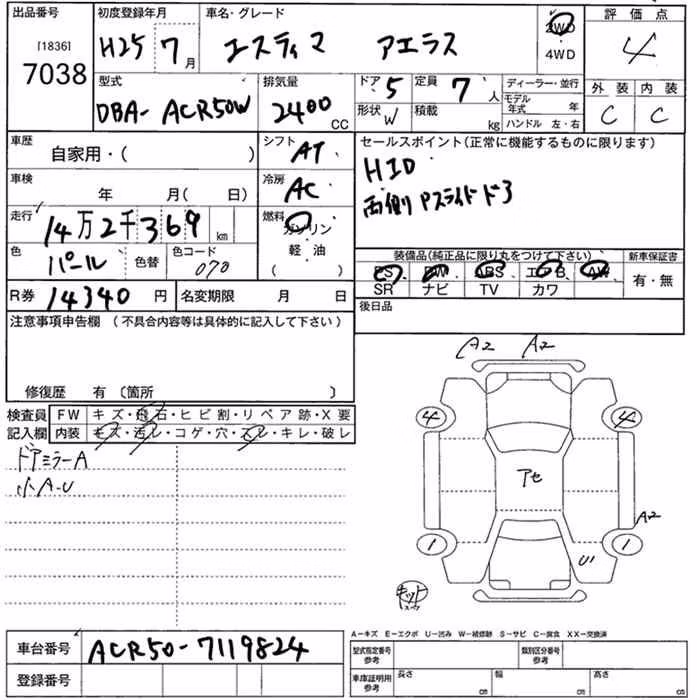 出品番号
[1836]
7038
初度登録年月
H25 7月
車名・グレード
エスティマ アエラス
2WD
4WD
評価点
4
外装 内装
C C
型式
DBA- ACR50W
排気量
2400 CC
ドア 5
定員 7人
形状 W
積載 kg
ディーラー・並行
モデル年式 年
ハンドル 左・右
車歴
自家用・( )
シフト AT
車検
年 月( 日)
冷房 AC
走行
14万2千369 km
燃料
ガソリン
軽・油
( )
色
パール
色替
色コード
070
R券 14340円
名変期限 月 日
セールスポイント(正常に機能するものに限ります)
HID
両側Pスライドドア
装備品(純正品に限り丸をつけて下さい)
PS PW ABS エアB AW
SR ナビ TV カワ
新車保証書
有・無
後日品
注意事項申告欄(不具合内容等は具体的に記入して下さい)
修復歴 有〔箇所 〕
検査員
記入欄
FW キズ・飛石・ヒビ割・リペア跡・X要
内装 キズ・汚レ・コゲ・穴・スレ・キレ・破レ
ドアミラーA
小A.U
A2 A2
4 4
アセ
A2
1 1
U1
キット
A−キズ E−エクボ U−凹み W−補修跡 S−サビ C−腐食 XX−交換済
車台番号 ACR50-7119824
登録番号
型式指定番号
参考
類別区分番号
参考
車庫証明用
参考
長さ cm
幅 cm
高さ cm